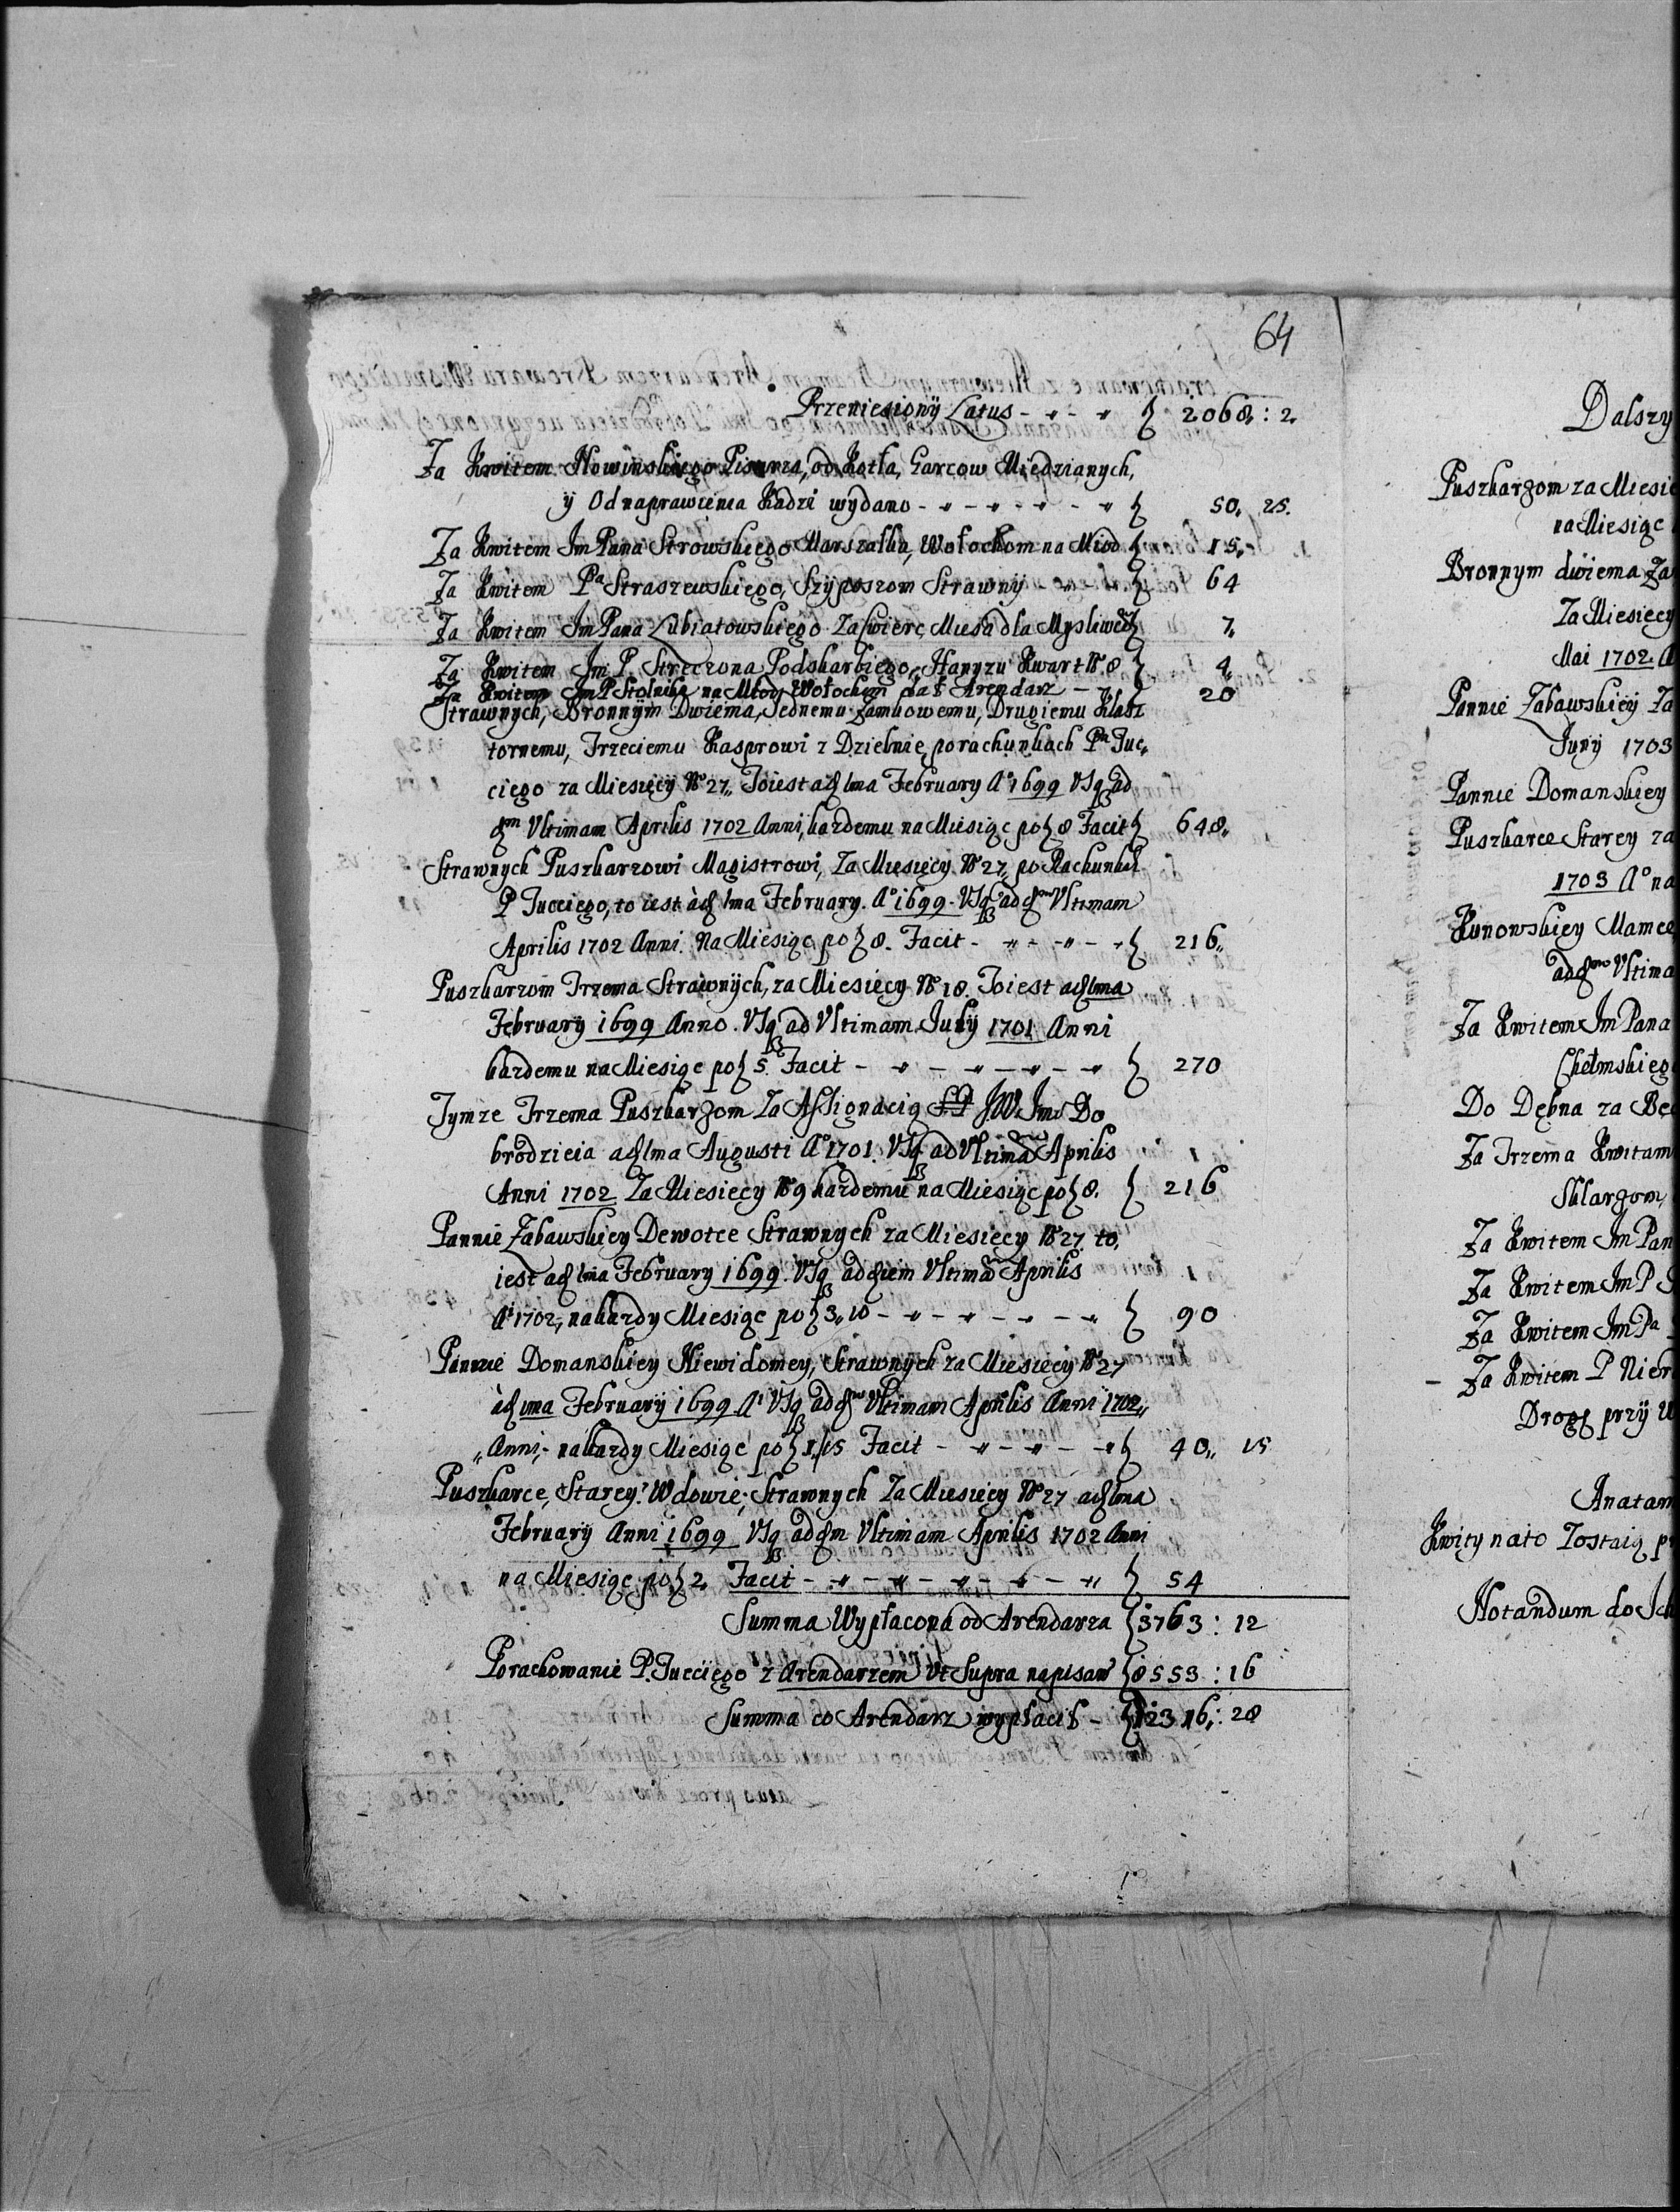 64
Przeniesiony Latus - 2068 : 2.
Za Kwitem Nowinskiego Pisarza, od Kotła, Garcow Miedzianych,
y Od naprawienia Kadzi wydano - 50, 25.
Za Kwitem Jm Pana Strowskiego Marszałka, Wołochom na Miod 15,
Za Kwitem Pa Straszewskiego, Szyposzom Strawny - 64
Za Kwitem Jm Pana Lubiatowskiego Za cwierc Miesa dla Mysliwech 7,
Za Kwitem Jm P. Streczona Podskarbiego, Hanyzu Kwart No 8 4,
Za Kwitem Jm P Stolnika na Młod Wołochom płat Arendarz - 20
Strawnych, Bronnym Dwiema, Jednemu Zamkowemu, Drugiemu Klasz
tornemu, Trzeciemu Kasprowi z Dzielnie po rachunkach Pn Juc,
ciego za Miesięcy No 27,, To iest ad 1ma February Ao 1699 Usq ad
dm Ultimam Aprilis 1702 Anni, kazdemu na Miesiąc po 8 Facit 648,,
Strawnych Puszkarzowi Magistrowi, Za Miesięcy No 27, po Rachunkach
P Jucciego, to iest ad 1ma February. Ao 1699. Usq ad dm Ultimam
Aprilis 1702 Anni. Na Miesiąc po 8. Facit - 216,,
Puszkarzom Trzema Strawnych, za Miesięcy No 18. To iest ad 1ma
February 1699 Anno. Usq ad Ultimam July 1701 Anni
kazdemu na Miesiąc po 5. Facit - 270
Tymze Trzema Puszkarzom Za Assignacią JW Jm Do
brodzieia ad 1ma Augusti Ao 1701. Usq ad Ultima Aprilis
Anni 1702 Za Miesiecy No 9 kazdemu na Miesiąc po 8. 216
Pannie Zabawskiey Dewotce Strawnych za Miesiecy No 27 to,
iest ad 1ma February 1699. Usq ad diem Ultima Aprilis
Ai 1702, na kazdy Miesiąc po 3,, 10 - 90
Pannie Domanskiey Niewidomey, Strawnych za Miesiecy No 27
ad 1ma February 1699 Ai Usq ad dm Ultimam Aprilis Anni 1702,,
,,Anni, na kazdy Miesiąc po 1,, 15 Facit - 40,, 15
Puszkarce, Starey Wdowie, Strawnych Za Miesiecy No 27 ad 1ma
February Anni 1699 Usq ad dm Ultimam Aprilis 1702 Anni
na Miesiąc po 2, Facit - 54
Summa Wypłacona od Arendarza 3763 : 12
Porachowanie P. Jucciego z Arendarzem Ut Supra napisan 8553 : 16
Summa co Arendarz wypłacił - 12316,: 28
Dalszy
Puszkarzom za Miesie
na Miesiąc
Bronnym dwiema Za
Za Miesiecy
Mai 1702 A
Pannie Zabawskiey Za
Juny 1703
Pannie Domanskiey
Puszkarce Starey za
1703 Ao na
Kunowskiey Mamce
ad dm Ultima
Za Kwitem Jm Pana
Chełmskieg
Do Dębna za Bec
Za Trzema Kwitam
Sklarzom,
Za Kwitem Jm Pan
Za Kwitem Jm P S
Za Kwitem Jm Pa
- Za Kwitem P Nier
Drogę przy
Anatam
Kwity na to Zostaią p
Notandum do Ich